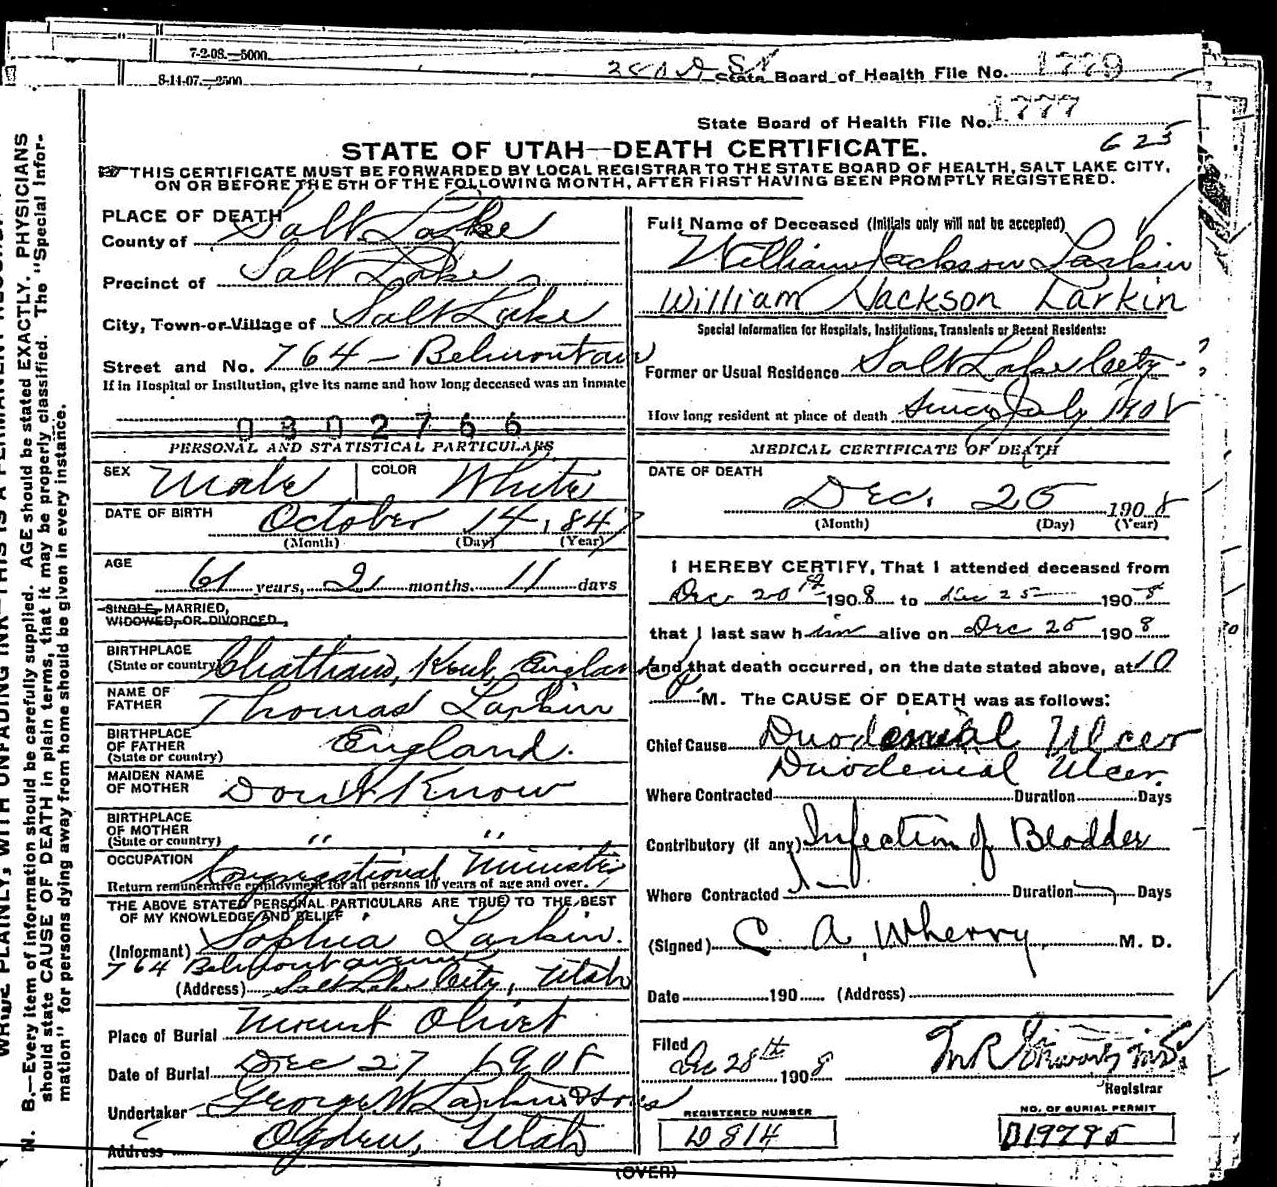 7-2-08.—5000.
8-14-07.—2500.
State Board of Health File No. 1779
State Board of Health File No. 1777
625
STATE OF UTAH—DEATH CERTIFICATE.
THIS CERTIFICATE MUST BE FORWARDED BY LOCAL REGISTRAR TO THE STATE BOARD OF HEALTH, SALT LAKE CITY,
ON OR BEFORE THE 5TH OF THE FOLLOWING MONTH, AFTER FIRST HAVING BEEN PROMPTLY REGISTERED.
PLACE OF DEATH
County of Salt Lake
Precinct of Salt Lake
City, Town or Village of Salt Lake
Street and No. 764 - Belmont ave
If in Hospital or Institution, give its name and how long deceased was an inmate
0302766
PERSONAL AND STATISTICAL PARTICULARS
SEX Male COLOR White
DATE OF BIRTH October 14, 1847
(Month) (Day) (Year)
AGE 61 years, 2 months. 11 days
SINGLE, MARRIED,
WIDOWED, OR DIVORCED
BIRTHPLACE
(State or country) Chattham, Kent, England
NAME OF
FATHER Thomas Larkin
BIRTHPLACE
OF FATHER
(State or country) England.
MAIDEN NAME
OF MOTHER Don't Know
BIRTHPLACE
OF MOTHER
(State or country) " "
OCCUPATION Congregational Minister
Return remunerative employment for all persons 10 years of age and over.
THE ABOVE STATED PERSONAL PARTICULARS ARE TRUE TO THE BEST
OF MY KNOWLEDGE AND BELIEF
(Informant) Sophia Larkin.
764 Belmont avenue
(Address) Salt Lake City, Utah
Place of Burial Mount Olivet
Date of Burial Dec 27 1908
Undertaker George W Larkin & Sons
Address Ogden, Utah
Full Name of Deceased (Initials only will not be accepted)
William Jackson Larkin
William Jackson Larkin
Special Information for Hospitals, Institutions, Transients or Recent Residents:
Former or Usual Residence Salt Lake City
How long resident at place of death since July 1908
MEDICAL CERTIFICATE OF DEATH
DATE OF DEATH
Dec. 25 1908
(Month) (Day) (Year)
I HEREBY CERTIFY, That I attended deceased from
Dec 20th 1908 to Dec 25 1908
that I last saw him alive on Dec 25 1908
and that death occurred, on the date stated above, at 10
P M. The CAUSE OF DEATH was as follows:
Chief Cause Duodenial Ulcer
Duodenial Ulcer.
Where Contracted Duration Days
Contributory (if any) Infection of Bladder
Where Contracted Duration Days
(Signed) C. A. Wherry M. D.
Date 190 (Address)
Filed
Dec 28th 1908
Registrar
REGISTERED NUMBER
D 814
NO. OF BURIAL PERMIT
B19795
(OVER)
N. B.—Every item of information should be carefully supplied. AGE should be stated EXACTLY. PHYSICIANS
should state CAUSE OF DEATH in plain terms, that it may be properly classified. The "Special Infor-
mation" for persons dying away from home should be given in every instance.